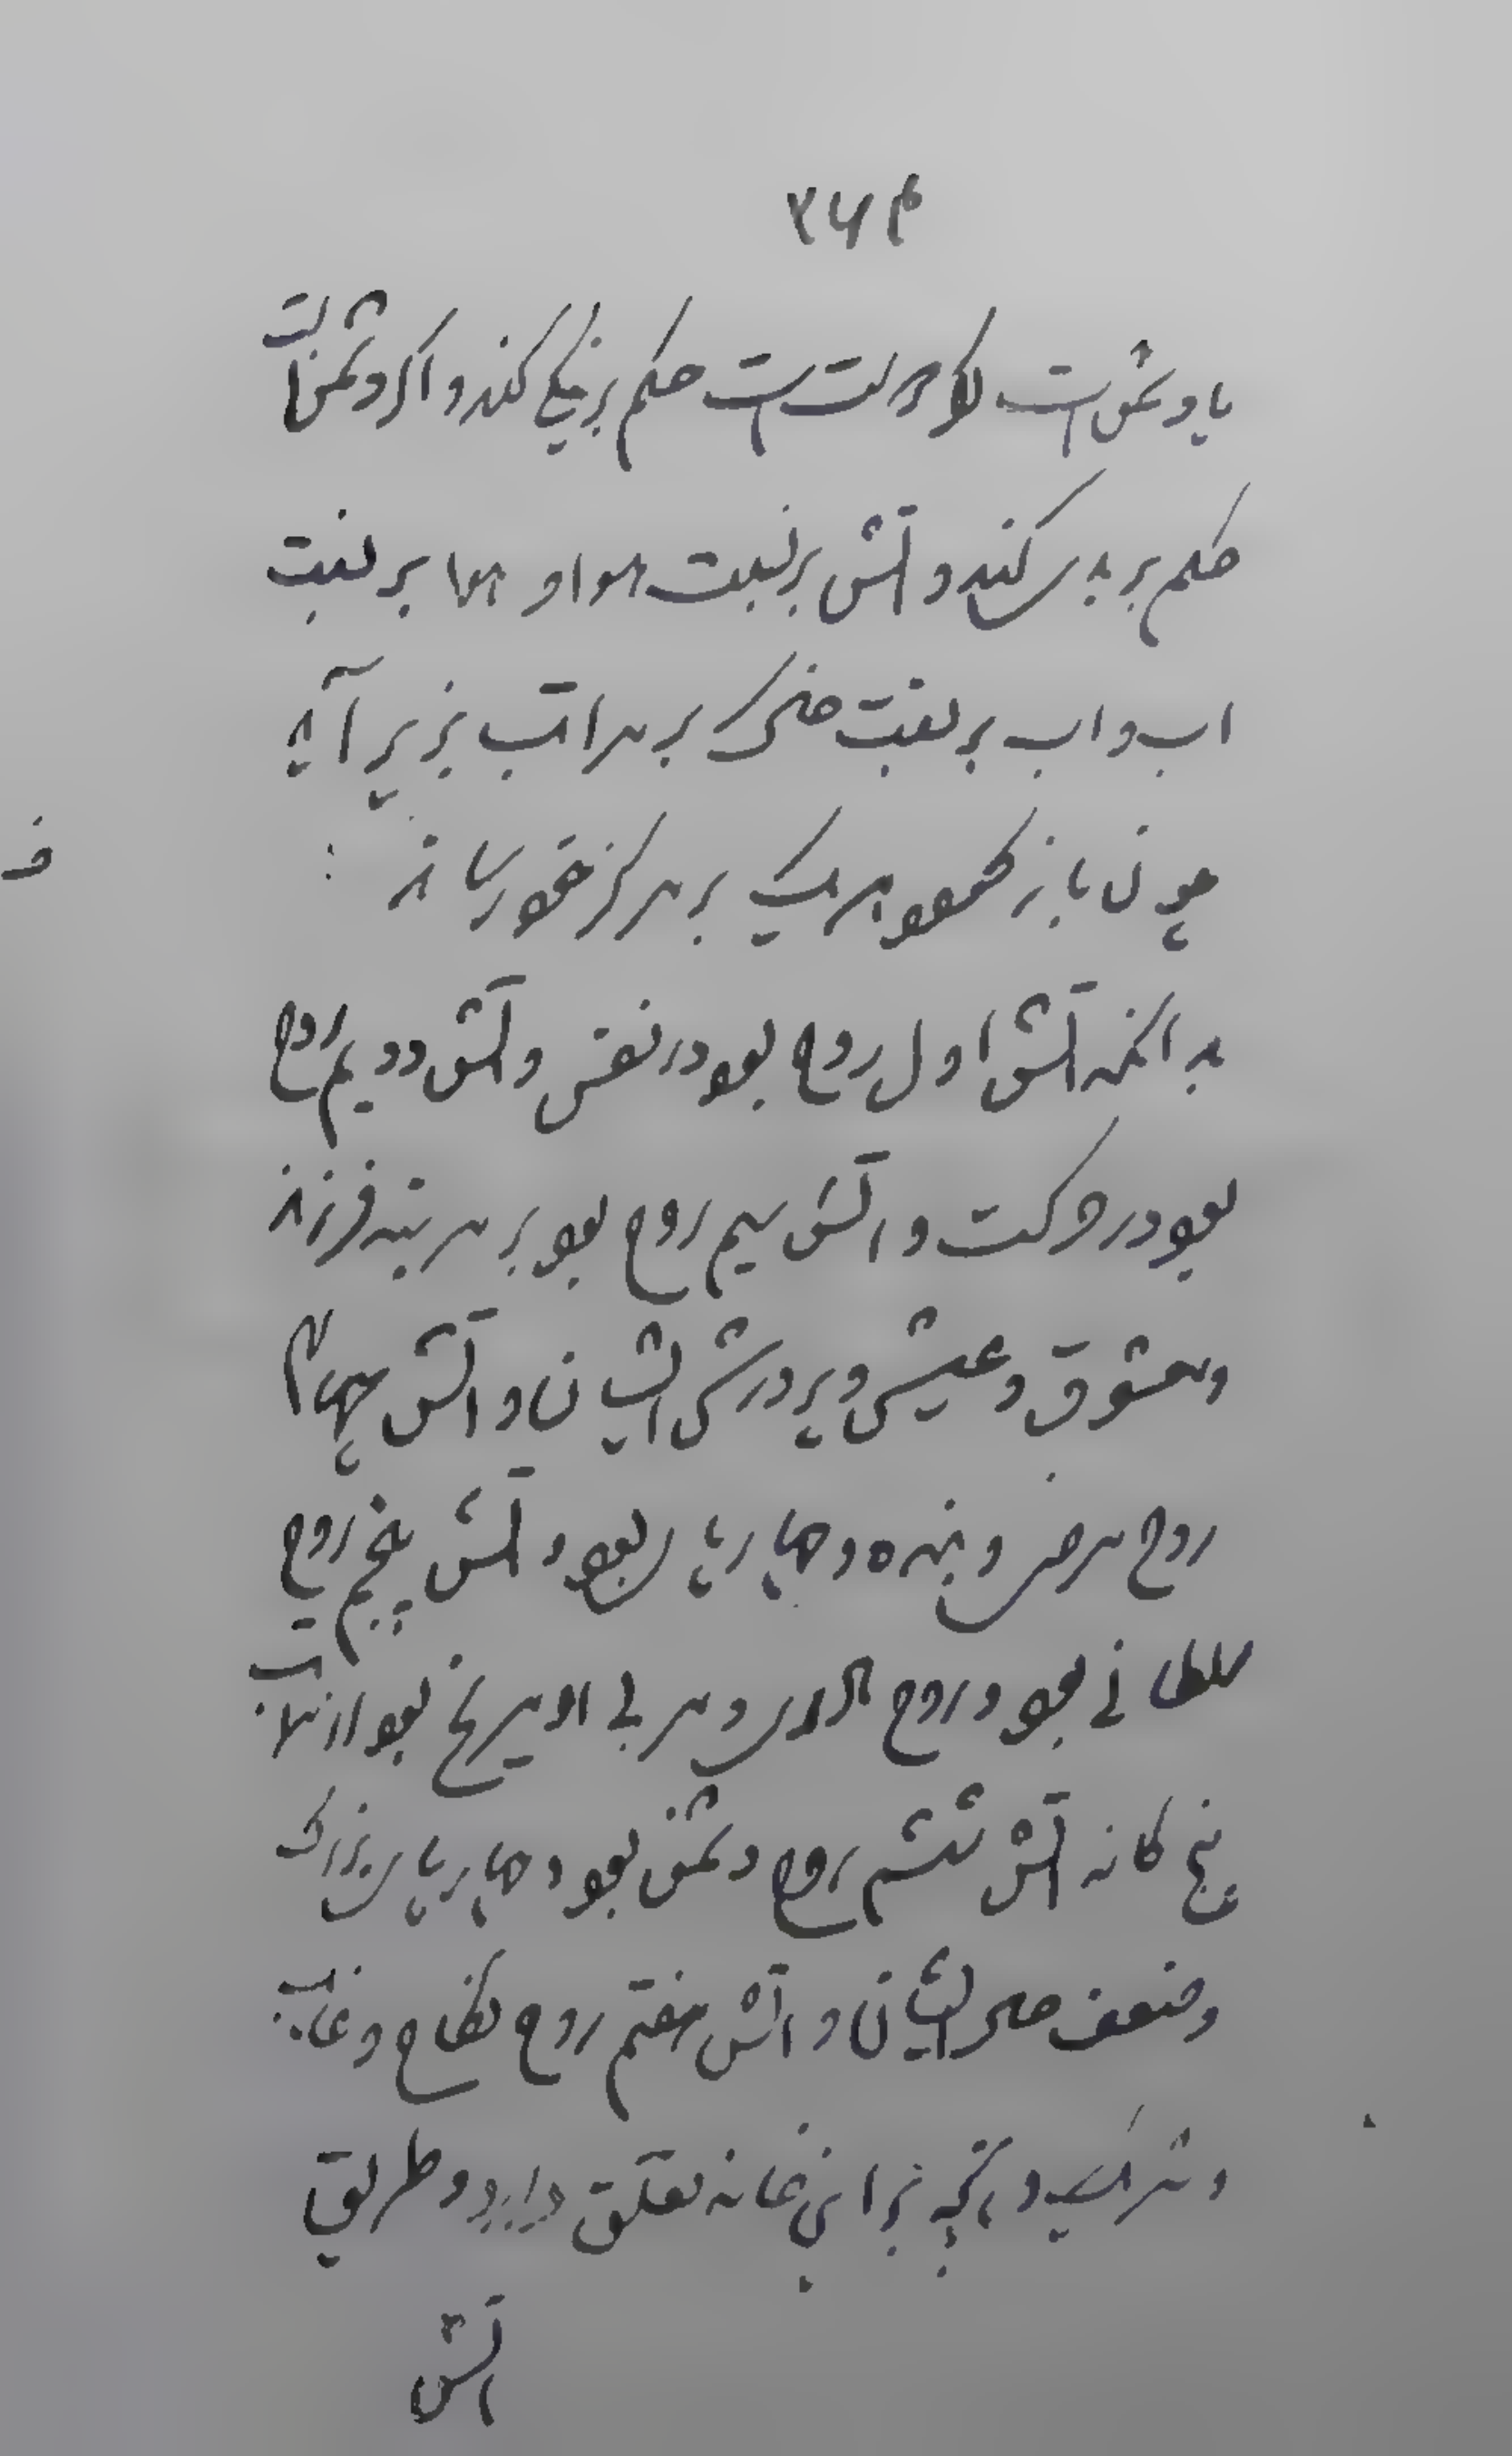 ۲۶۴
یا دشمن است اگر دوست است حکم بر نیکی کند و اگر دشمن است
حکم بر بدی کند و آتش بر نسبت هوا و هوا بر نسبت
اب و اب بر نسبت خاک بر مراتب بزیر آید
چون باز صعود هر یک بر مرکز خود رساند
بدانکه آتش اول روح بود در نفس و آتش دویم روح
بود در حرکت و آتش سیم روح بود بر مرتبه فرزند
و معشوق و عیش و پرورش ایشان و آتش چهارم
روح مرض و بنده و چارپا بود و آتش پنجم روح
سلطانی بود و روح بود از نهایت
پنج گانه آتش ششم روح دشمن بود و چارپا بزرگ
و ضعف حال ایشان و آتش هفتم روح نکاح و غایب
و شراکت و آنچه بر این خانه تعلق دارد و طریق
آتش